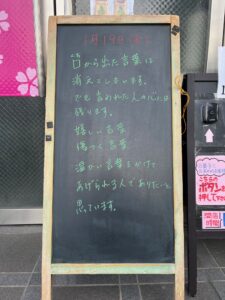 1月19日(金)
口から出た言葉は
消えてしまいます。
でも言われた人の心には
残ります。
嬉しい言葉
傷つく言葉
温かい言葉をかけて
あげられる人でありたいと
思っています。
こちらの
ボタンを
押して下さい
開館
時間